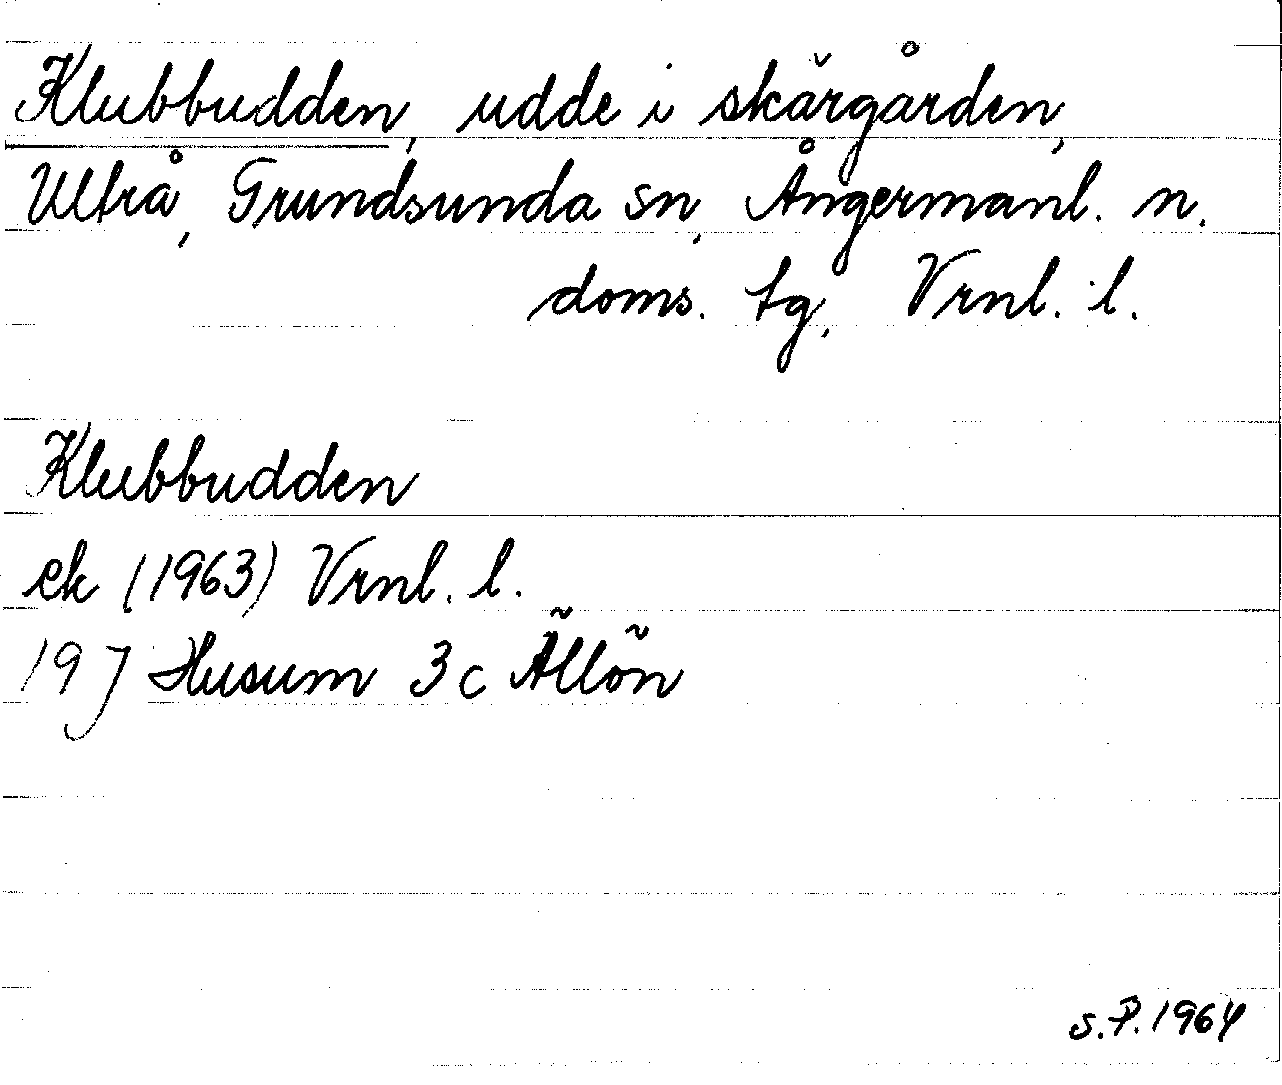 Klubbudden, udde i skärgården,
Ultrå, Grundsunda sn, Ångermanl. n.
doms. tg, Vrnl. l.
Klubbudden
ek (1963) Vrnl. l.
19 J Husum 3 c Ällön
s.P. 1964